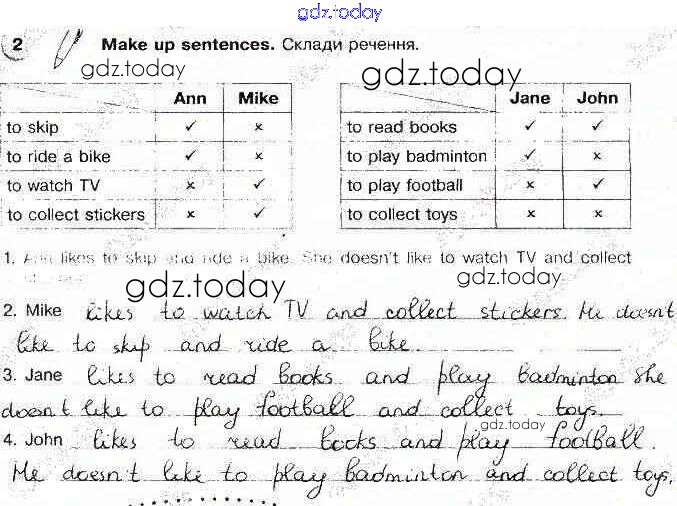 gdz.today
2 Make up sentences. Склади речення.
gdz.today
gdz.today
Ann Mike
to skip ✓ x
to ride a bike ✓ x
to watch TV x ✓
to collect stickers x ✓
Jane John
to read books ✓ ✓
to play badminton ✓ x
to play football x ✓
to collect toys x x
1. Ann likes to skip and ride a bike. She doesn't like to watch TV and collect
gdz.today
gdz.today
2. Mike likes to watch TV and collect stickers. He doesn't
like to skip and ride a bike.
3. Jane likes to read books and play badminton She
doesn't like to play football and collect toys.
gdz.today
4. John likes to read books and play football.
He doesn't like to play badminton and collect toys.